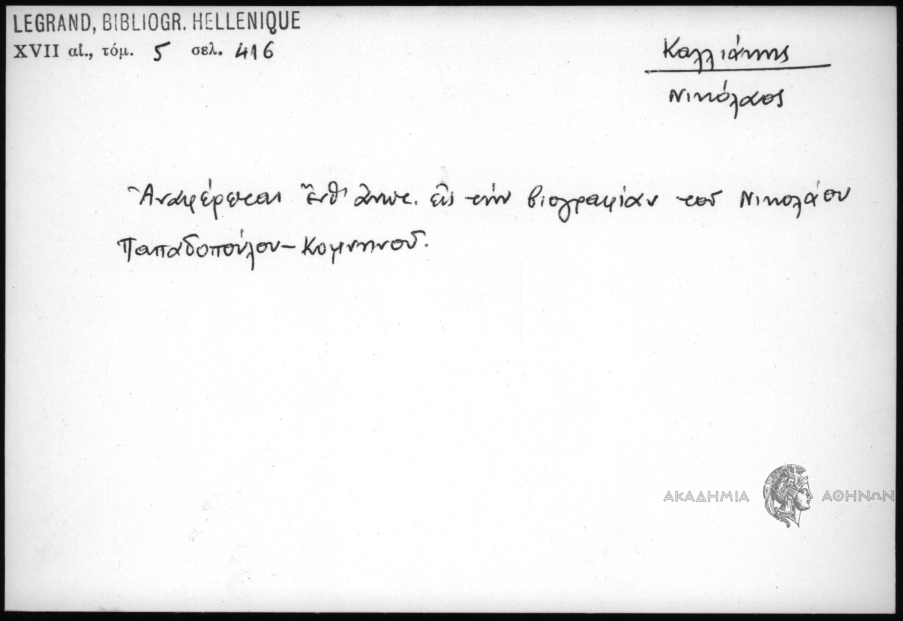 LEGRAND, BIBLIOGR. HELLENIQUE
XVII αἰ., τόμ. 5 σελ. 416
Καλλιάκης
Νικόλαος
Ἀναφέρεται ἔνθ' ἀνωτ. εἰς τὴν βιογραφίαν τοῦ Νικολάου
Παπαδοπούλου–Κομνηνοῦ.
ΑΚΑΔΗΜΙΑ ΑΘΗΝΩΝ